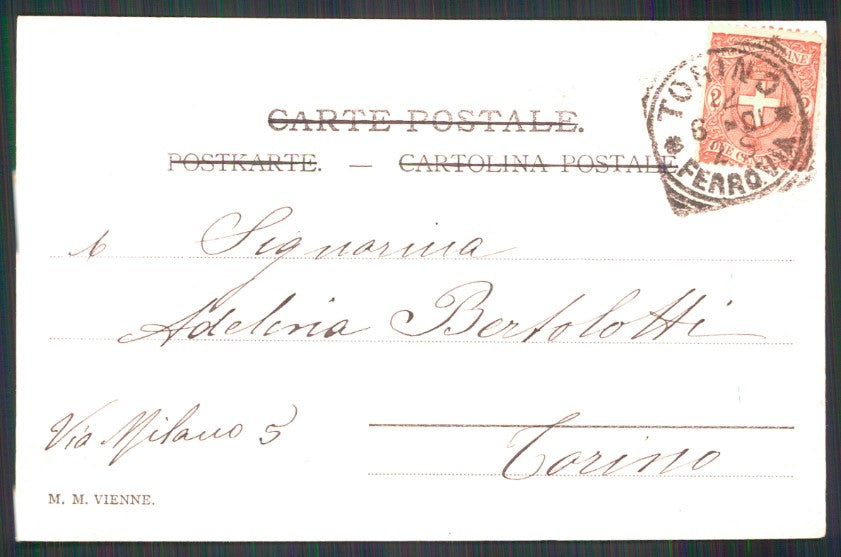 CARTE POSTALE.
POSTKARTE. — CARTOLINA POSTALE
TORINO
FERROVIA
2 2
Signorina
Adelina Bertolotti
Via Milano 5
Torino
M. M. VIENNE.